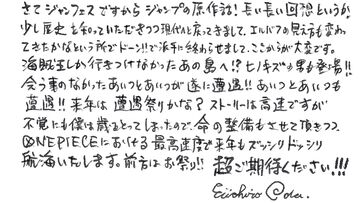 さてジャンフェスですからジャンプの原作話！長い長い回想というか
少し歴史を知っていただきつつ現代へ戻ってきまして、エルバフの見え方も変わっ
てきたかなという所でドーン!!で派手に終わらせまして、ここからが大変です。
海賊王しか行きつけなかったあの島へ!?七ノキズも男も登場!!
会う事のなかったあいつとあいつが遂に遭遇!!あいつとあいつも
遭遇!!来年は遭遇祭りかな？ストーリーは高速ですが
不覚にも僕は歳をとってしまったので、命の整備もさせて頂きつつ
ONE PIECEにおける最高速度で来年もズッシリドッシリ
航海いたします。前方はお祭り!!超ご期待ください!!!
Eiichiro Oda.